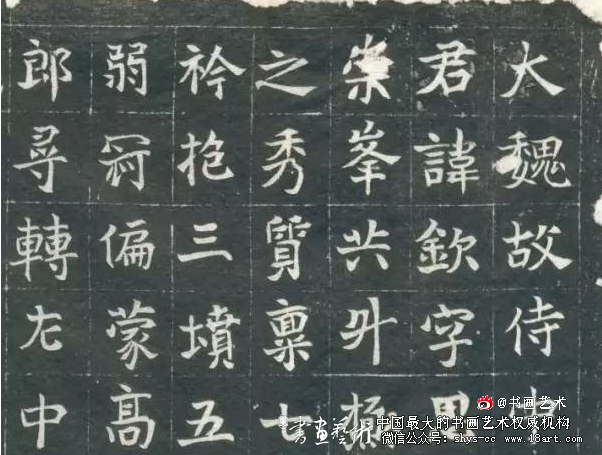 大魏故侍中
君諱欽字思
崇峯共升極
之秀質稟七
衿抱三墳五
弱冠偏蒙高
郎尋轉左中
@书画艺术
書畫藝術
中国最大的书画艺术权威机构
微信公众号：shys-cc www.18art.com